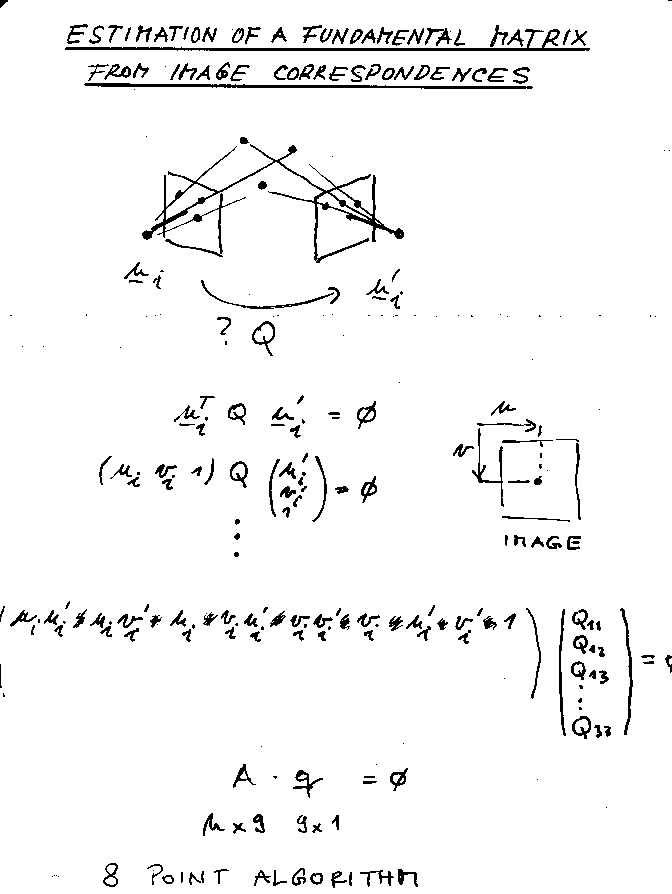 ESTIMATION OF A FUNDAMENTAL MATRIX
FROM IMAGE CORRESPONDENCES
u_i
u'_i
? Q
u_i^T Q u'_i = ∅
(u_i v_i 1) Q (u'_i v'_i 1) = ∅
⋮
u
v
IMAGE
u_i u'_i u_i v'_i u_i v_i u'_i v_i v'_i v_i u'_i v'_i 1
Q11
Q12
Q13
⋮
Q33
= ∅
A · q = ∅
n x 9 9 x 1
8 POINT ALGORITHM